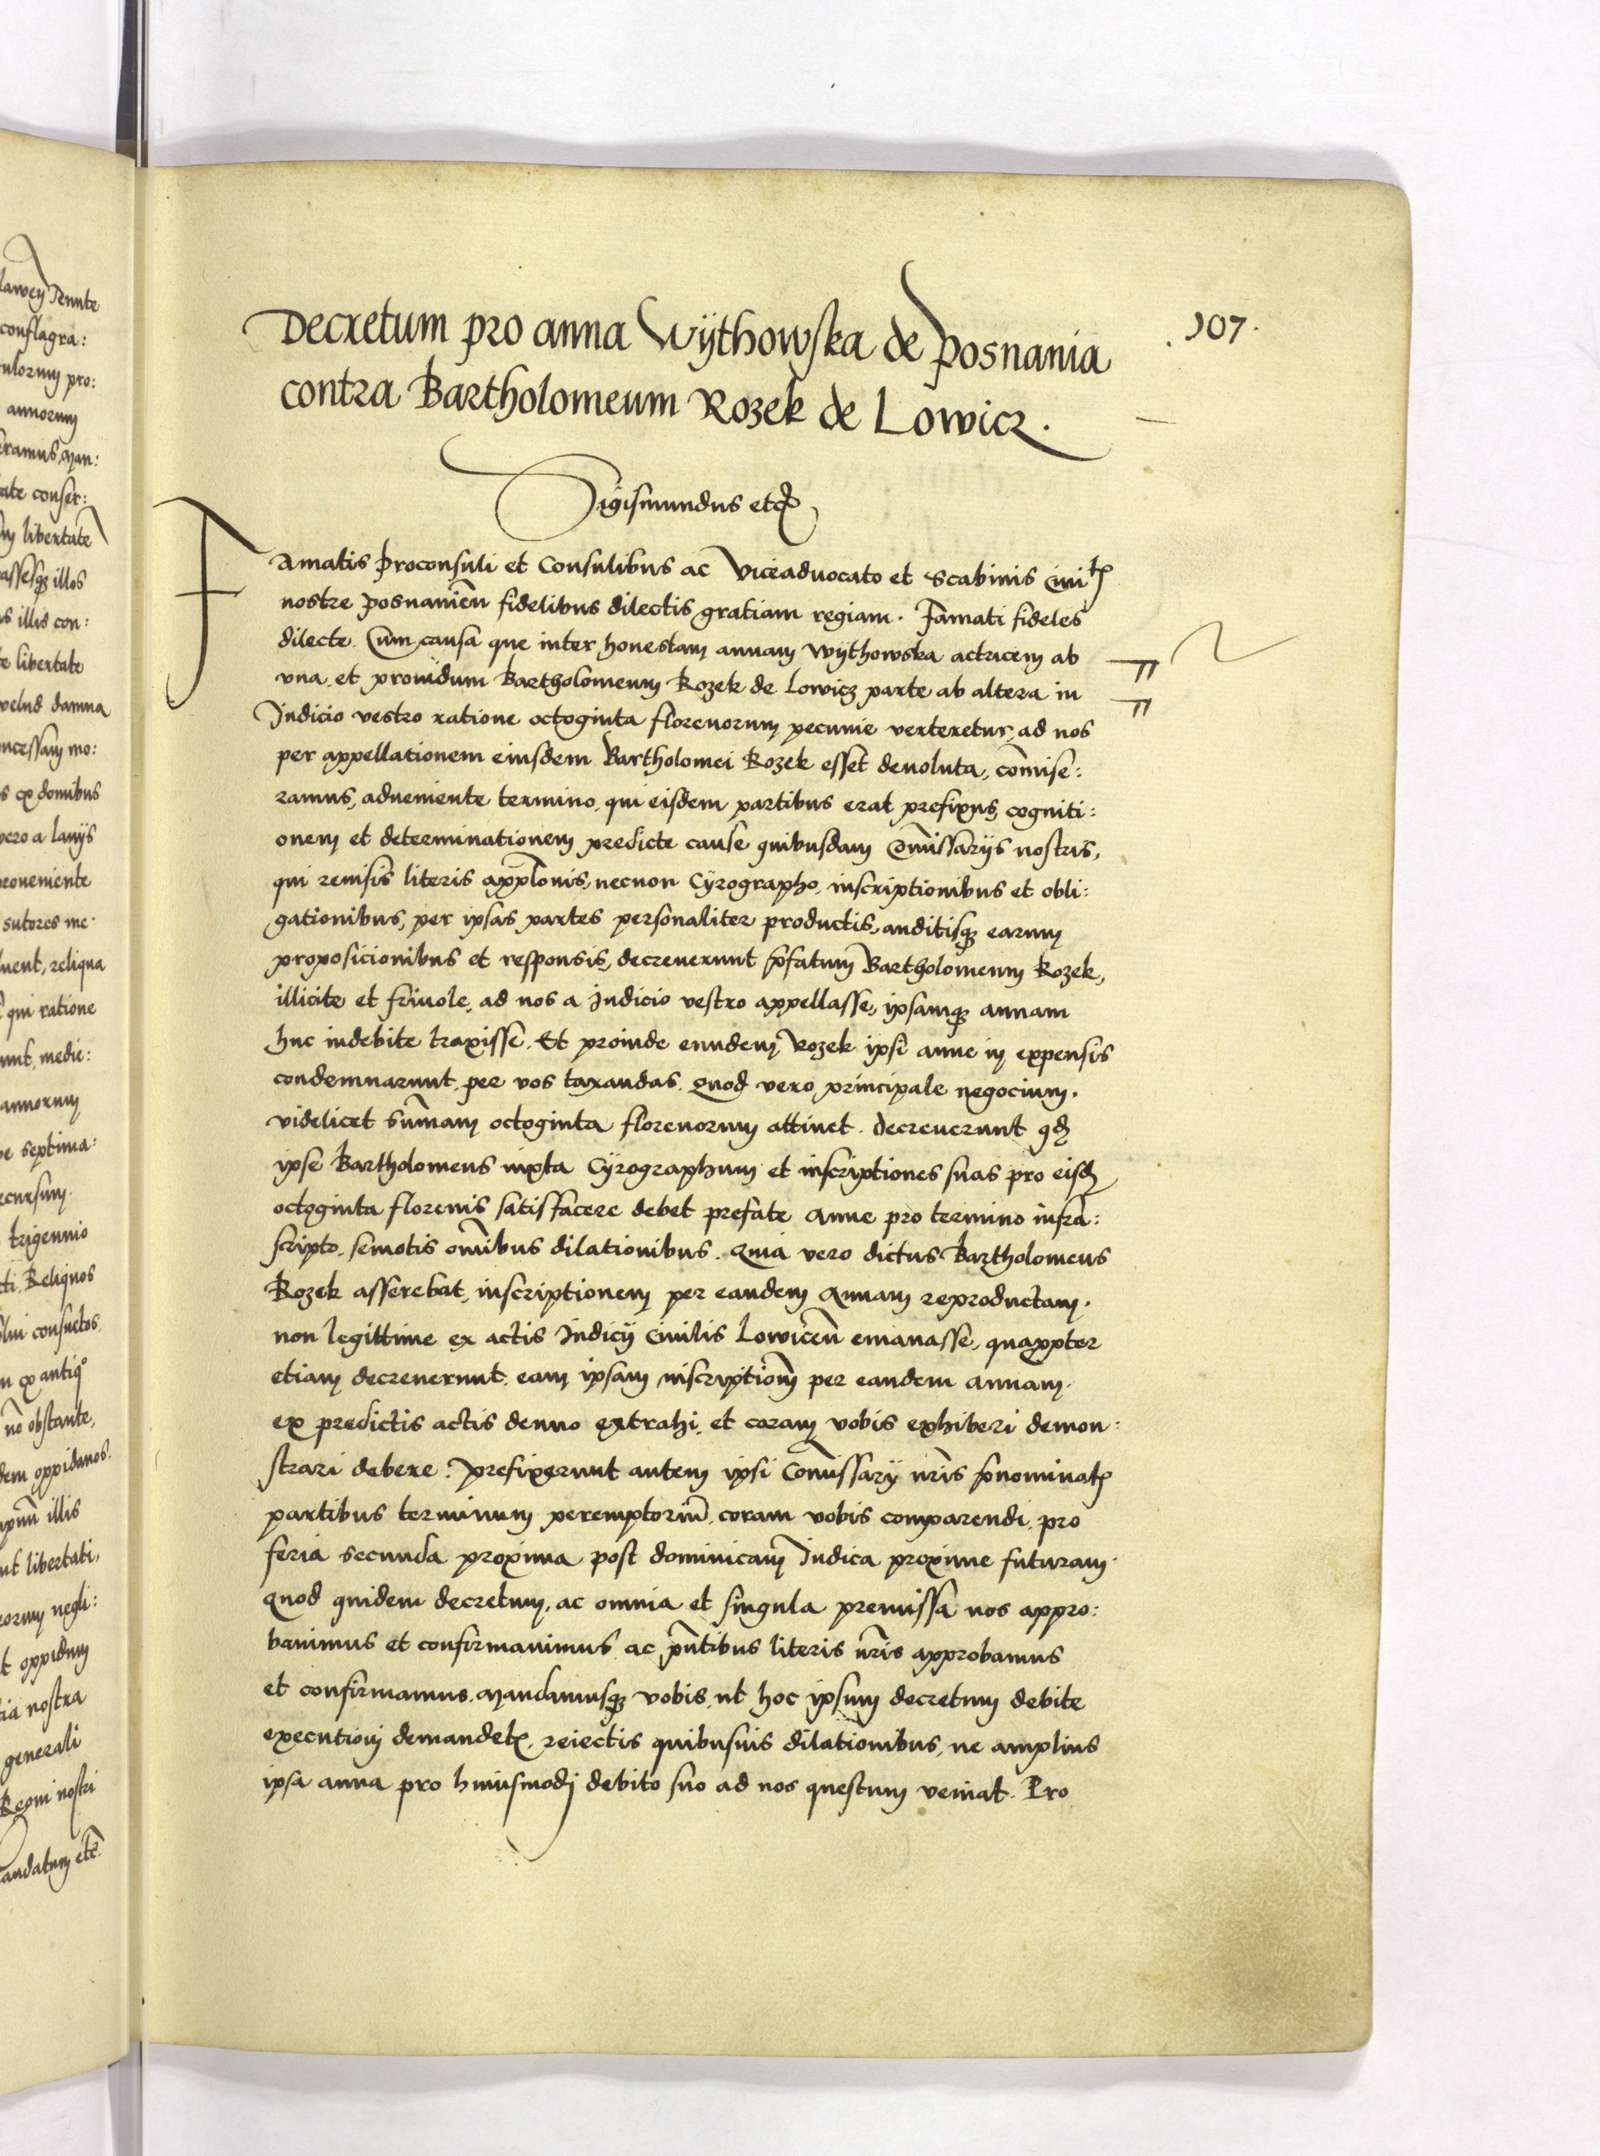 .107.
Decretum pro anna Wÿthowska de Posnania
contra Bartholomeum Rozek de Lowicz.
Sigismundus etc
Famatis Proconsuli et Consulibus ac Viceaduocato et Scabinis Ciuitt
nostre Posnanień fidelibus dilectis gratiam regiam. Famati fideles
dilecte. Cum causa que inter honestam annam Wÿthowska actricem ab
vna, et prouidum Bartholomeum Rozek de Lowicz parte ab altera in
Judicio vestro ratione octoginta florenorum pecunie verteretur, ad nos
per appellationem eiusdem Bartholomei Rozek esset deuoluta, com̄ise:
ramus, adueniente termino, qui eisdem partibus erat prefixus, cogniti:
onem et determinationem predicte cause quibusdam Com̄issarijs nostris,
qui reuisis literis app̄lonis, necnon Cÿrographo, inscriptionibus et obli:
gationibus, per ipsas partes personaliter productis, auditisqȝ earum
proposicionibus et responsis, decreuerunt p̄fatum Bartholomeum Rozek,
illicite et friuole, ad nos a Judicio vestro appellasse, ipsamqȝ annam
huc indebite traxisse. Et proinde eundem Rozek ipsi anne in expensis
condemnarunt, per vos taxandas. Quod vero principale negocium.
videlicet sum̄am octoginta florenorum attinet. decreuerunt qđ
ipse Bartholomeus iuxta Cÿrographum et inscriptiones suas pro eisđ
octoginta florenis satisfacere debet prefate Anne pro termino infra:
scripto, semotis om̄ibus dilationibus. Quia vero dictus Bartholomeus
Rozek asserebat, inscriptionem per eandem Annam reproductam.
non legittime ex actis Judicij Ciuilis Lowiceń emanasse, quappter
etiam decreuerunt, eam ipsam inscriptiom̄ per eandem annam.
ex predictis actis denuo extrahi, et coram vobis exhiberi demon:
strari debere. Prefixerunt autem ipsi Com̄issarij nr̄is p̄nominatꝭ
partibus terminum peremptoriū, coram vobis comparendi, pro
feria secunda proxima post dominicam Judica proxime futuram.
Quod quidem decretum, ac omnia et singula premissa nos appro:
bauimus et confirmauimus ac p̄ntibus literis nr̄is approbamus
et confirmamus, Mandamusqȝ vobis, ut hoc ipsum decretum debite
executioni demandetꝭ, reiectis quibusuis dilationibus, ne amplius
ipsa anna pro huiusmodj debito suo ad nos questum veniat. Pro